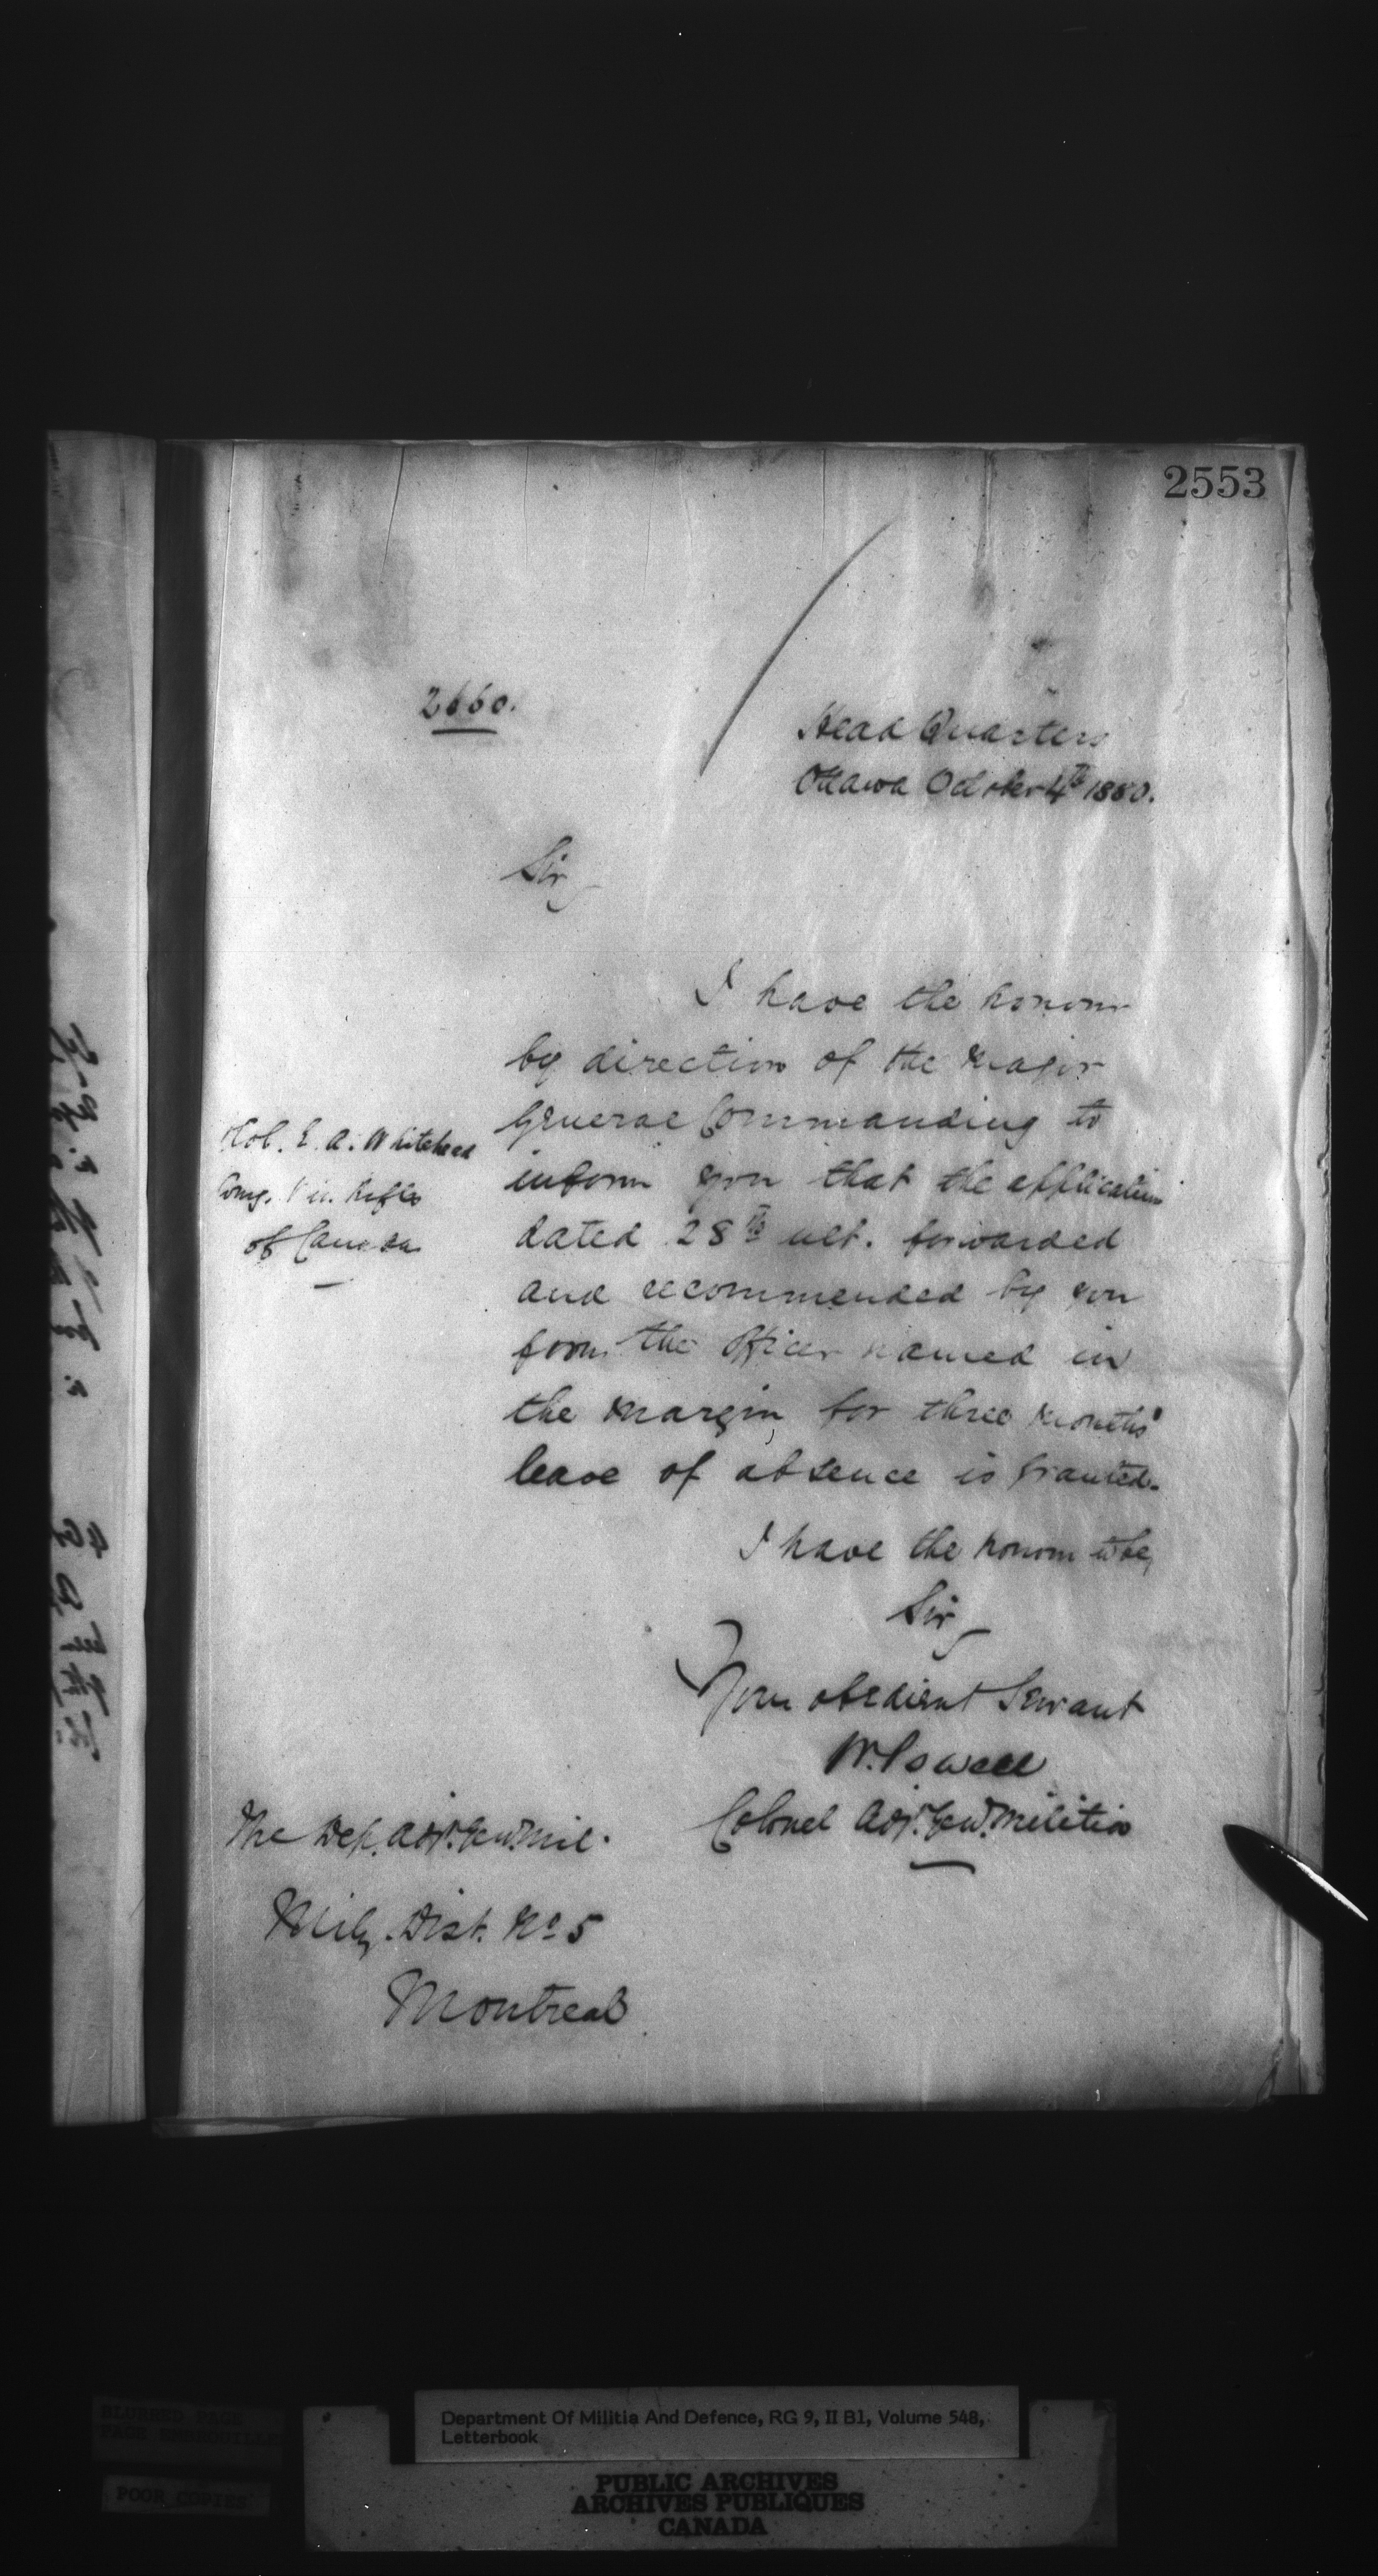 2553
2660.
Head Quarters
Ottawa October 4th 1880.
Sir,
I have the honour
by direction of the Major
General Commanding to
inform you that the application
dated 28th ult. forwarded
and recommended by you
from the Officer named in
the margin, for three months'
leave of absence is granted.
Col. E. A. Whitehead
Comg. Vic. Rifles
of Canada
I have the honour to be,
Sir,
Your obedient Servant
W. Powell
Colonel Adjt. Genl. Militia
The Dep. Adjt. Genl. Mil.
Mily. Dist. No 5
Montreal
Department Of Militia And Defence, RG 9, II B1, Volume 548,
Letterbook
BLURRED PAGE
PAGE EMBROUILLEE
POOR COPIES
PUBLIC ARCHIVES
ARCHIVES PUBLIQUES
CANADA